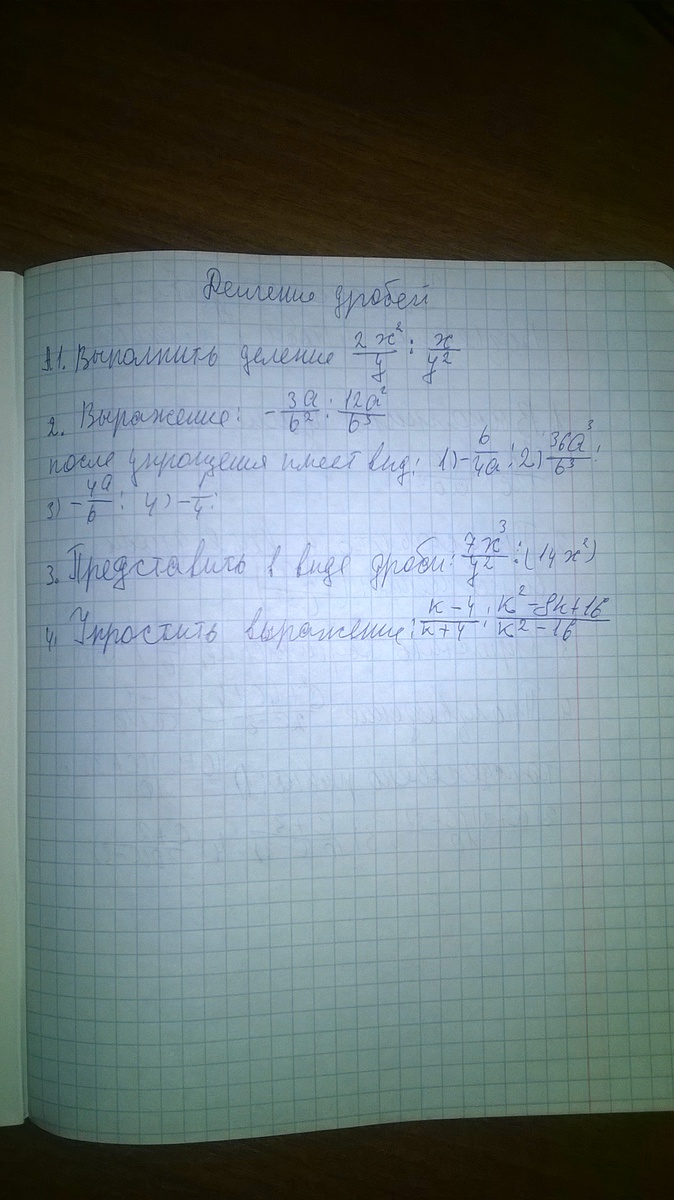 Деление дробей
А1. Выполнить деление 2x²/y : x/y²
2. Выражение: -3a/b² : 12a²/b³
после упрощения имеет вид: 1) -b/4a; 2) 36a³/b³;
3) -4a/b; 4) -1/4;
3. Представить в виде дроби: 7x³/y² : (14x²)
4. Упростить выражение: к-4/к+4 : к²-8к+16/к²-16